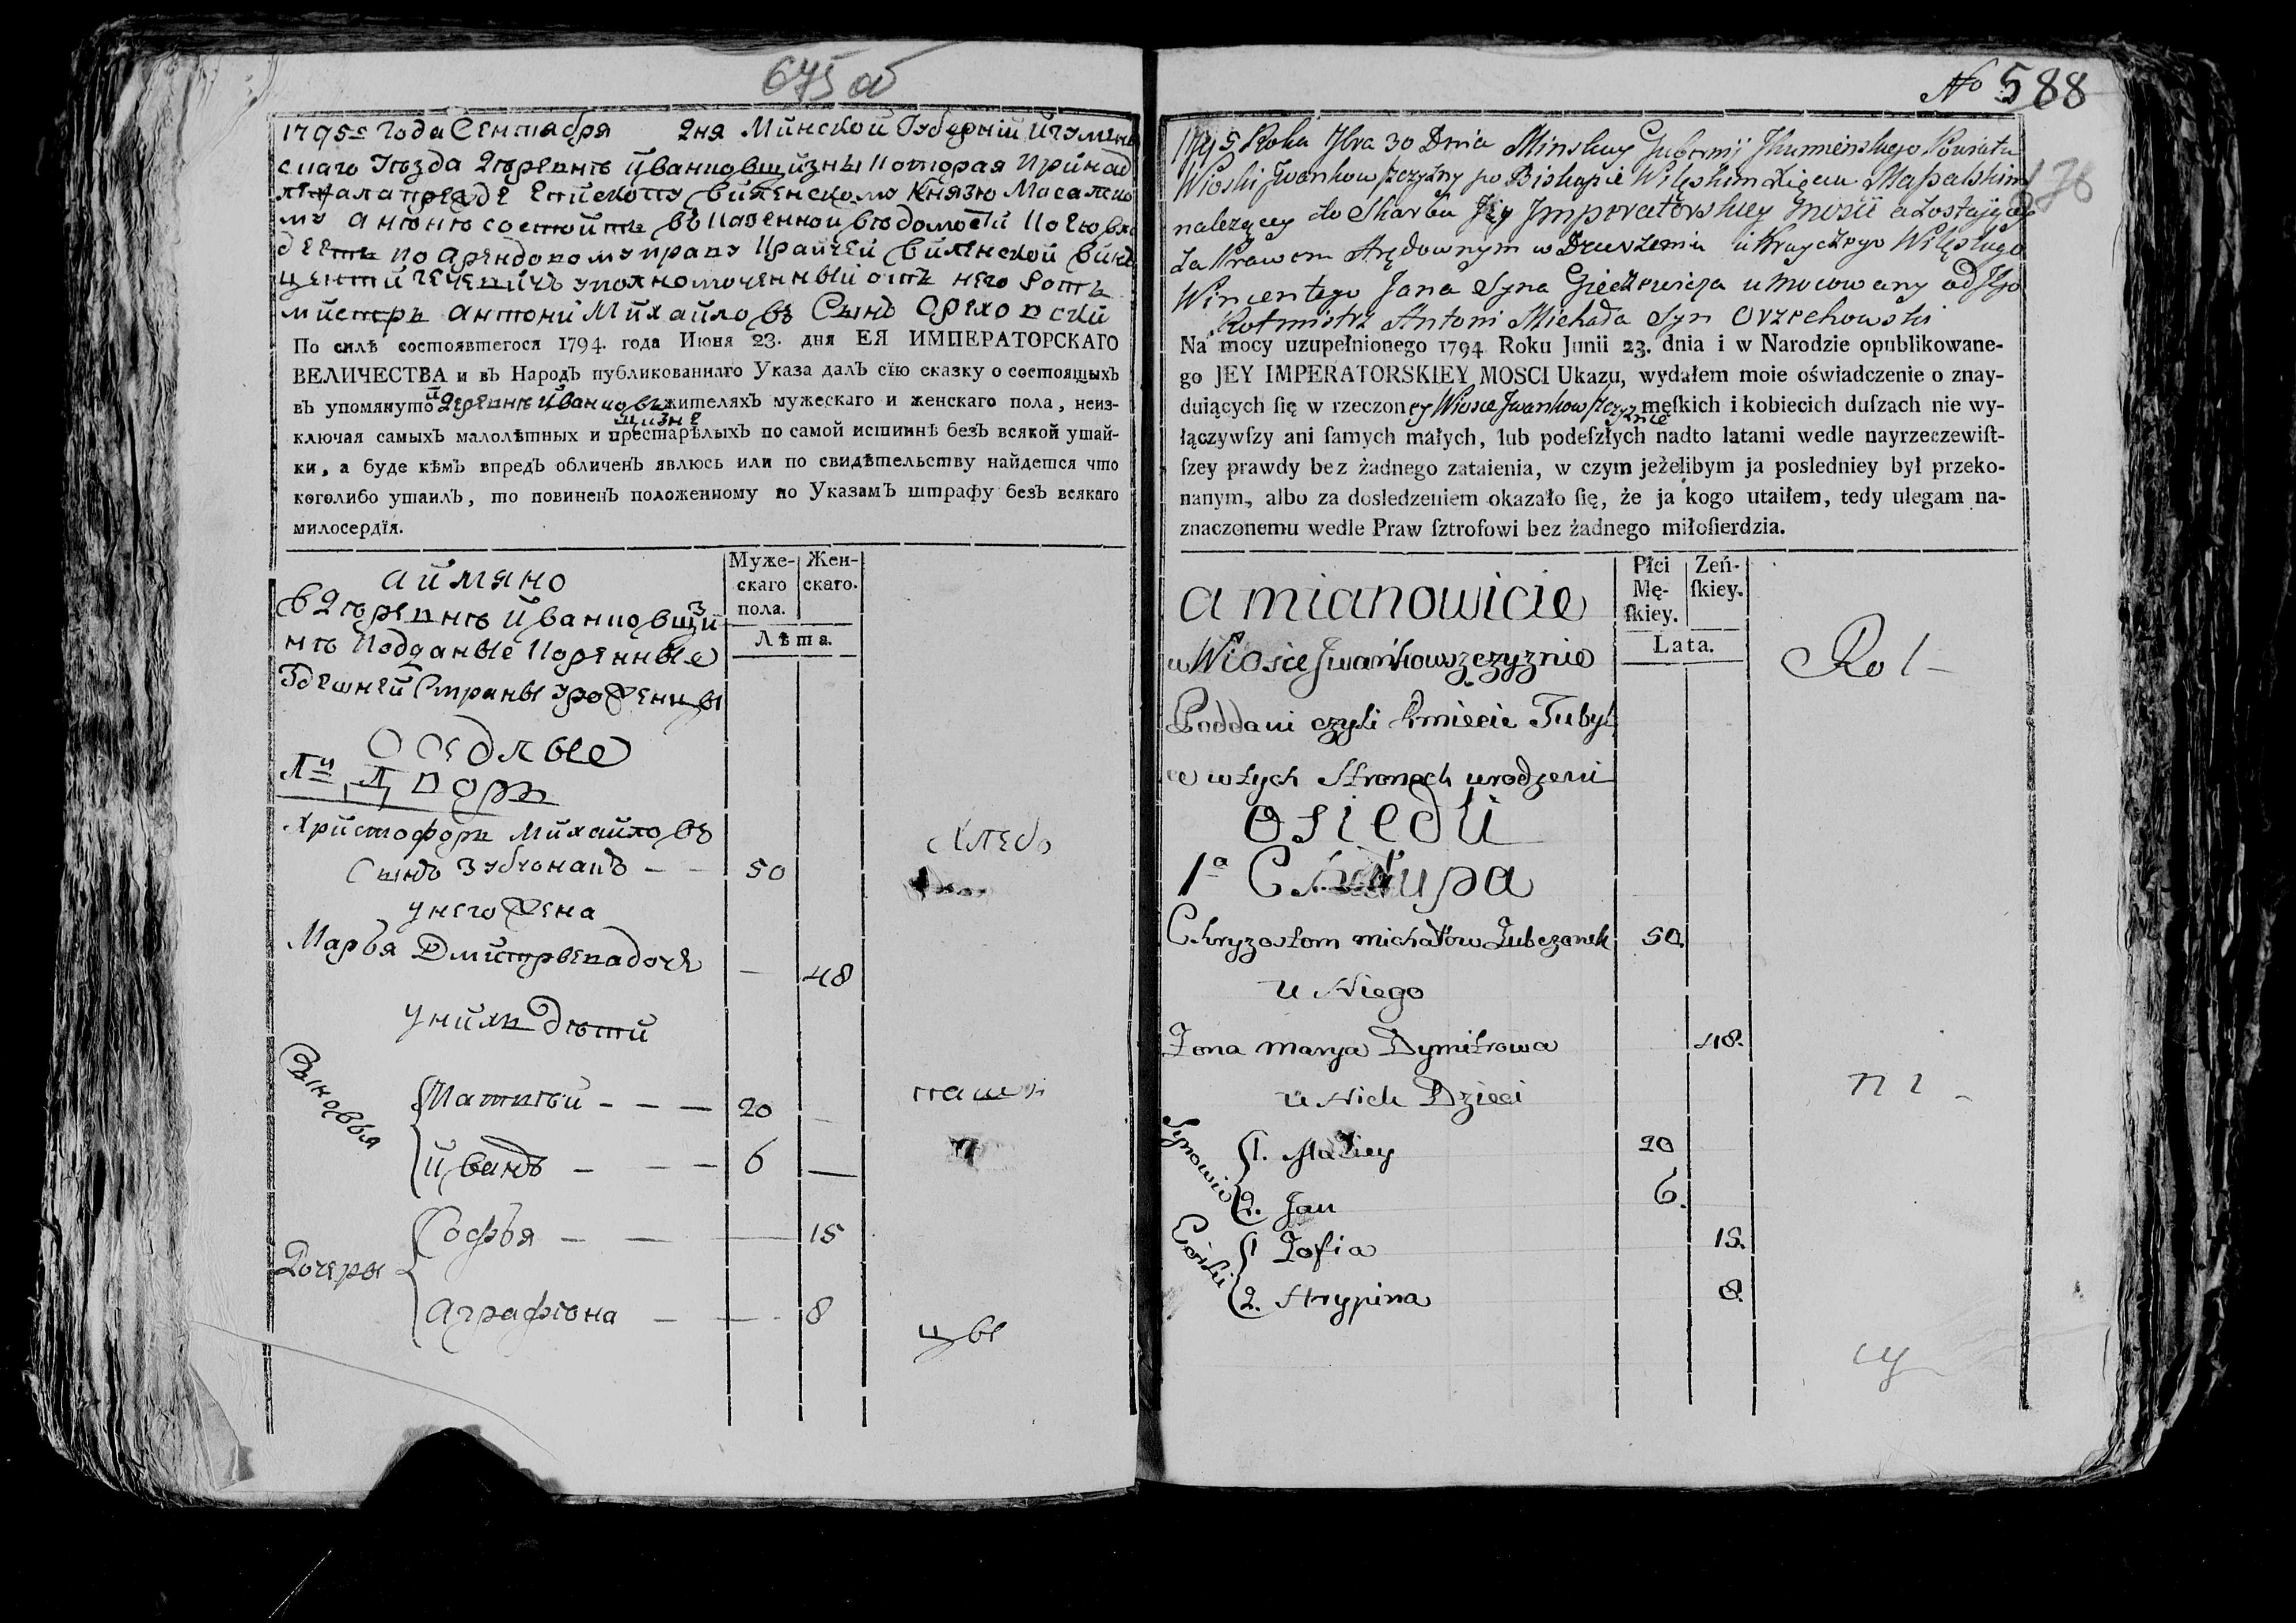 675 об
1795 года Сентября дня Минской Губернии Игумен
скаго уезда деревнѣ Иванковщизны которая принад
лежала прежде Епископу Виленскому Князю Масальско
му а нонѣ состоитъ въ казенной вѣдомости и его вла
дѣетъ по арендовому праву крайчей Виленской Винц
ентий Гечевичъ уполномоченный отъ него Рот
мистеръ Антони Михайловъ Сынъ Ореховский
По силѣ состоявшегося 1794. года Июня 23. дня ЕЯ ИМПЕРАТОРСКАГО
ВЕЛИЧЕСТВА и въ Народъ публикованнаго Указа далъ сїю сказку о состоящыхъ
въ упомянутой деревнѣ Иванковщизне жителяхъ мужескаго и женскаго пола, неиз-
ключая самыхъ малолѣтныхъ и престарѣлыхъ по самой истиннѣ безъ всякой утай-
ки, а буде кѣмъ впредъ обличенъ явлюсь или по свидѣтельству найдется что
коголибо утаилъ, то повиненъ положенному по Указамъ штрафу безъ всякаго
милосердїя.
Муже-
скаго
пола.
Жен-
скаго.
Лѣта.
а имяно
в деревнѣ Иванковщиз
нѣ Подданые коренные
здешней Страны уроженцы
Оседлые
1й дворъ
Христофоръ Михайловъ
Сынъ Зубчонакъ — — 50
Хлебо
у него жена
Марья Дмитрьева дочь — 48
у нихъ дѣти
Сыновья
Матвѣй — — — 20 —
паши
Иванъ — — — 6 —
Дочеры
Софья — — — 15
Аграфѣна — — 8
цы
No 588
1795 Roku 7bra 30 Dnia Minskiey Gubernij Jhumienskiego Powiatu
Wioski Jwankowszczyzny po Biskupie Wileńskim Xięciu Massalskim
należącey do Skarbu Jey Jmperatorskiey Mości a zostającey
za Prawem Arędownym w Dzierżeniu u Krayczego Wileńskiego
Wincentego Jana Syna Gieczewicza umocowany od Jego
Rotmistrz Antoni Michała Syn Orzechowski
Na mocy uzupełnionego 1794 Roku Junii 23. dnia i w Narodzie opublikowane-
go JEY IMPERATORSKIEY MOSCI Ukazu, wydałem moie oświadczenie o znay-
duiących ſię w rzeczoney Wiosce Jwankowszczyznie męſkich i kobiecich duſzach nie wy-
łączywſzy ani ſamych małych, lub podeſzłych nadto latami wedle nayrzeczewiſt-
ſzey prawdy bez żadnego zataienia, w czym jeżelibym ja posledniey był przeko-
nanym, albo za dosledzeniem okazało ſię, że ja kogo utaiłem, tedy ulegam na-
znaczonemu wedle Praw ſztrofowi bez żadnego miłoſierdzia.
Płci
Mę-
ſkiey.
Zeń-
ſkiey.
Lata.
a mianowicie
w Wiosce Jwańkowszczyznie
Rol—
Poddani czyli Kmiecie Tubyl
ce w tych Stronach urodzeni
Osiedli
1a Chałupa
Chryzostom Michałow Zubczonek 50.
u Niego
Zona Marya Dymitrowa 48.
u Nich Dzieci
ni—
Synowie
1. Maciey 20
2. Jan 6.
Corki
1 Zofia 15.
2. Agrypina 8.
cy